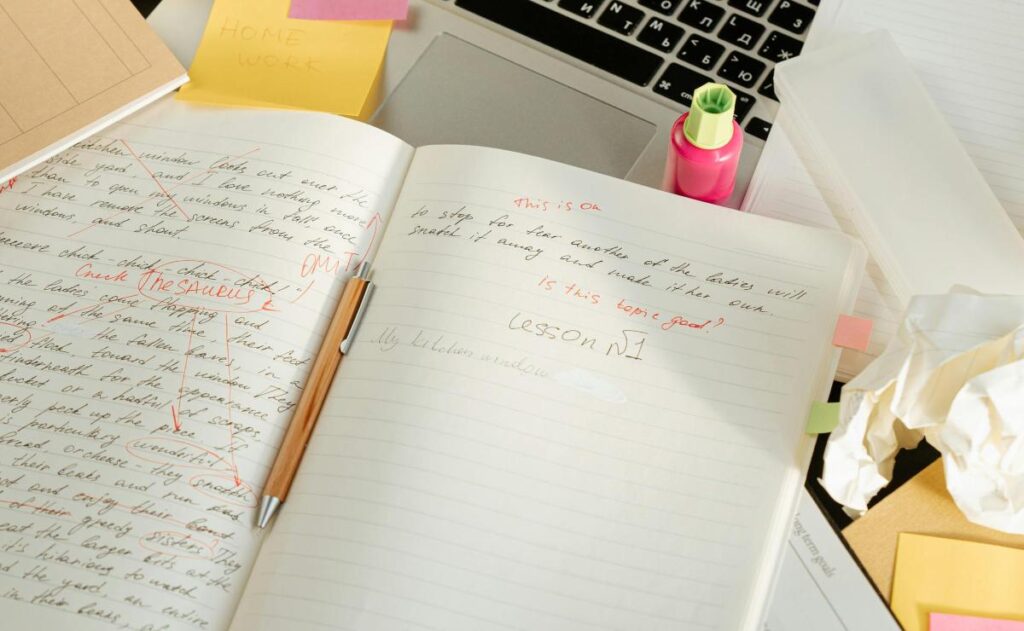 HOME
WORK
kitchen window looks out over the
side yard, and I love nothing more
than to open my windows in fall, once
I have remove the screens from the
windows, and shout.
chick-chick-chick-chick!"
OMIT
Check Thesaurus
the ladies come flapping and
of the same time, their feet
the fallen leaves, in a
flick, toward the window. They
underneath for the appearance
bucket or a handful of scraps.
peck up the piece. If
is particulary wonderful
bread, or cheese - they snatch
their beaks and run and
and enjoy their
of their greedy sisters. They
eat the larger bits at the
it's hilarious to watch
the yard, an entire
in their beaks,
this is on
to stop for fear another of the ladies will
snatch it away and make it her own.
Is this topic good?
Lesson №1
My kitchen window
И
Т
Ь
О
Л
Б
Щ
Д
Ю
З
Ж
long term goals